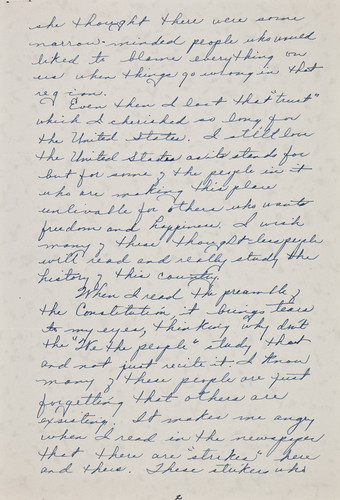 she thought there were some
narrow-minded people who would
liked to blame everything on
us when things go wrong in that
region.
Even then I lost that "trust"
which I cherished so long for
the United States. I still love
the United States as its stands for
but for some of the people in it
who are making this place
unlivable for others who wants
freedom and happiness. I wish
many of these thoughtless people
will read and really study the
history of this country.
When I read the preamble of
the Constitution, it brings tears
to my eyes, thinking why don't
the "We the people" study that
and not just recite it. I know
many of these people are just
forgetting that others are
exsisting. It makes me angry
when I read in the newspaper
that there are "strikes" here
and there. These strikers who